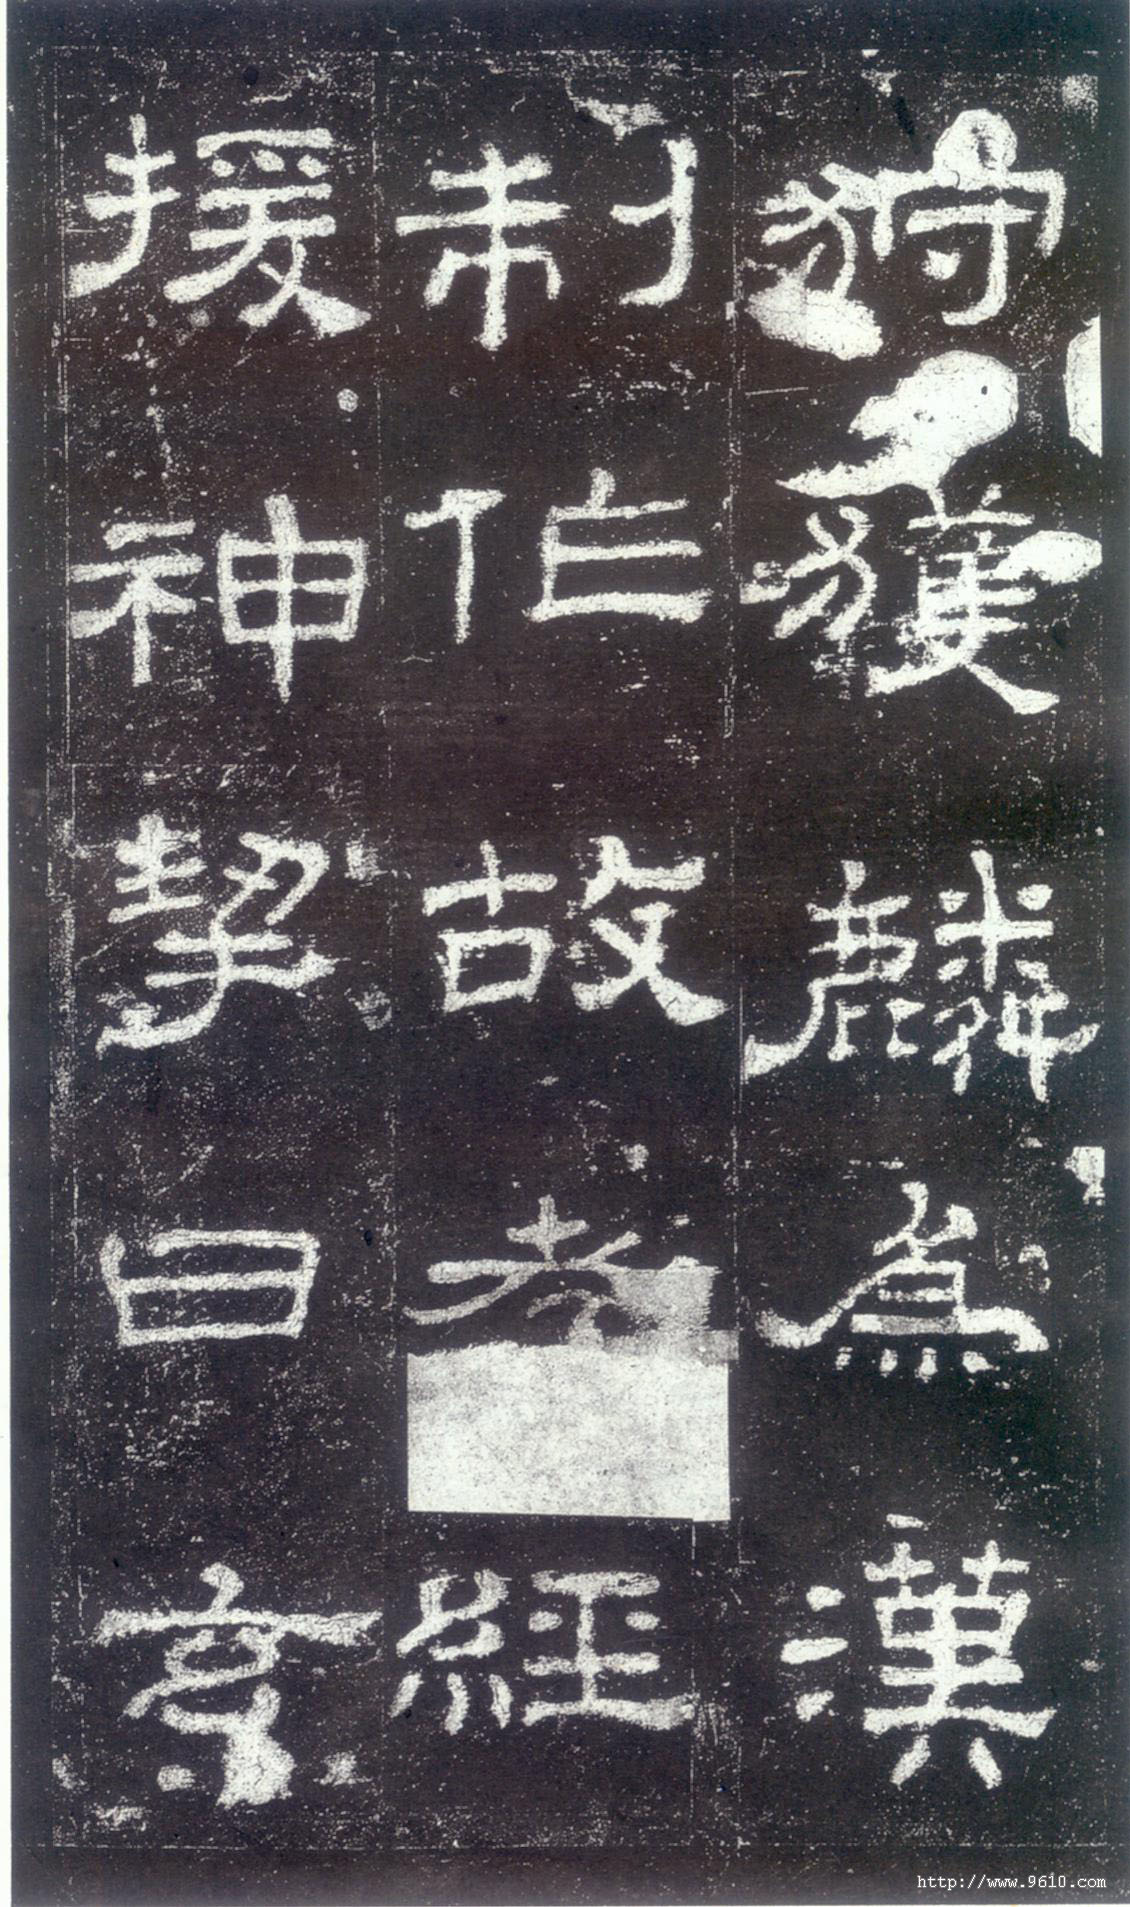 狩獲麟為漢
制作故孝經
援神挈曰玄
http://www.9610.com